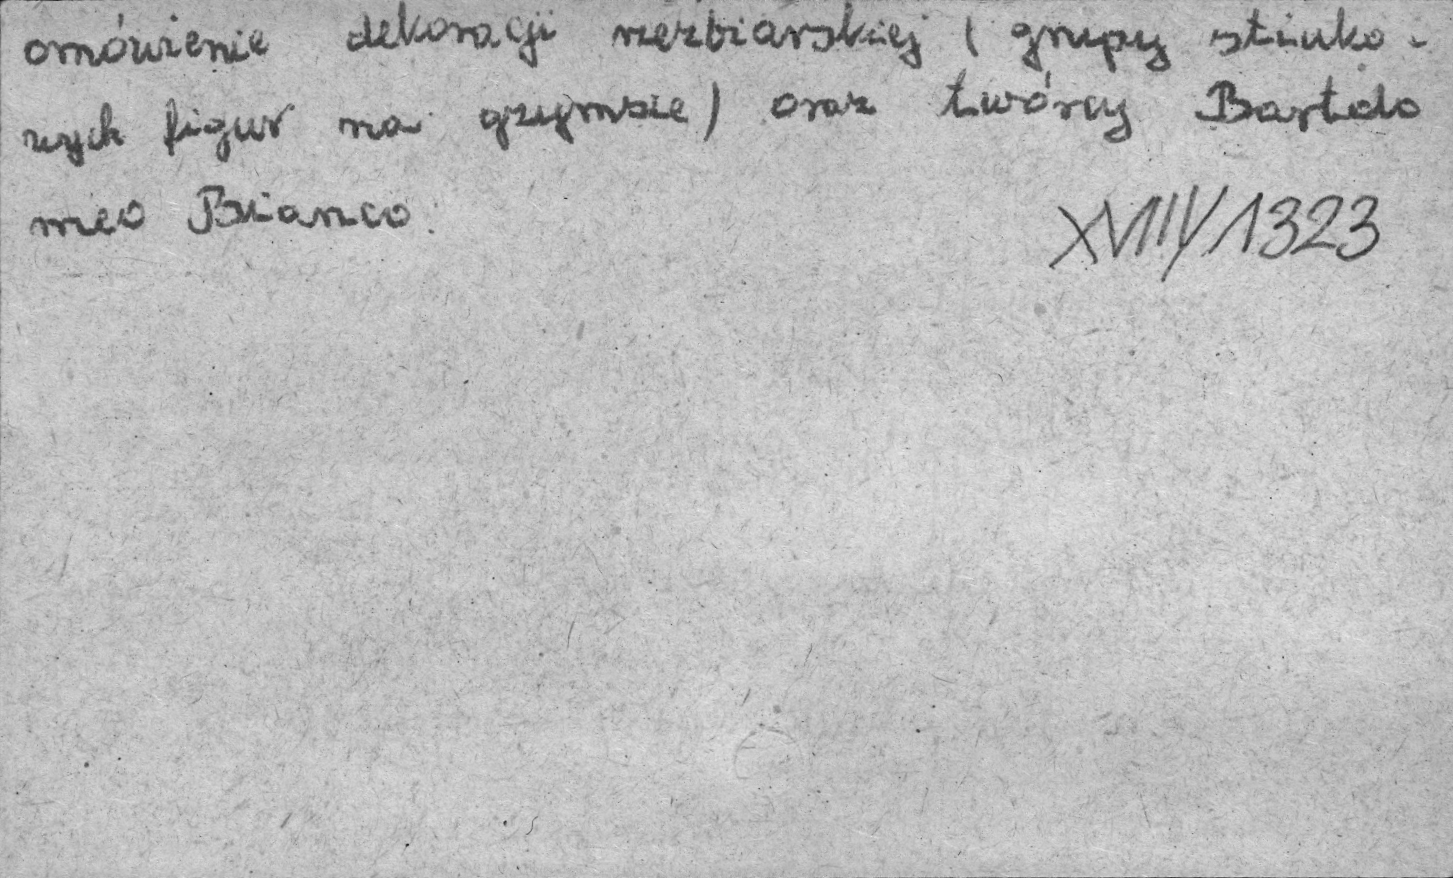 omówienie dekoracji rzeźbiarskiej (grupy stiuko-
wych figur na gzymsie) oraz twórcy Bartolo
meo Bianco.
XVIII/1323